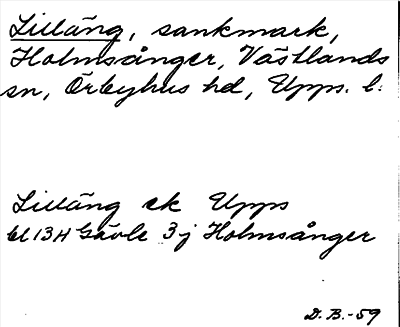 Lilläng, sankmark,
Holmsånger, Västlands
sn, Örbyhus hd, Upps. l:
Lilläng ek Upps
bl 13H Gävle 3j Holmsånger
D.B.-59